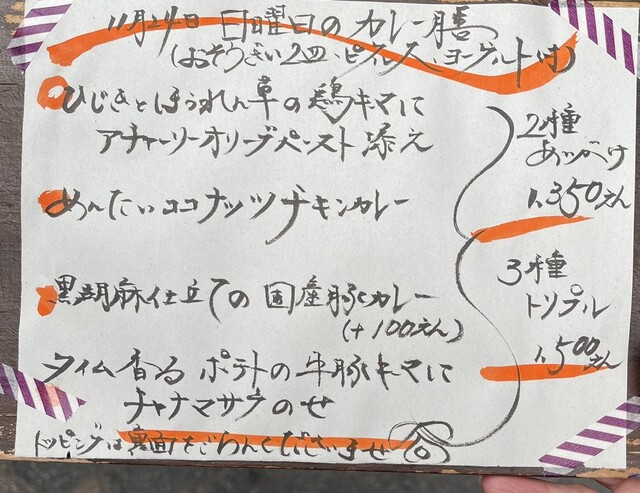 11月24日 日曜日のカレー膳
(おそうざい2皿、ピクルス、ヨーグルト付)
ひじきとほうれん草の鶏キマに
アチャーリーオリーブペースト添え
めんたいココナッツチキンカレー
黒胡麻仕立ての国産豚カレー
(+100えん)
タイム香るポテトの牛豚キマに
チャナマサラのせ
トッピングは裏面をごらんくださいませ
2種
あいがけ
1,350えん
3種
トリプル
1,500えん